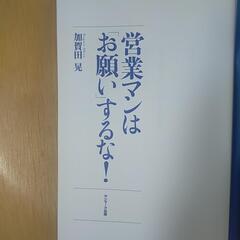 営業マンは
「お願い」するな！
加賀田 晃
サンマーク出版